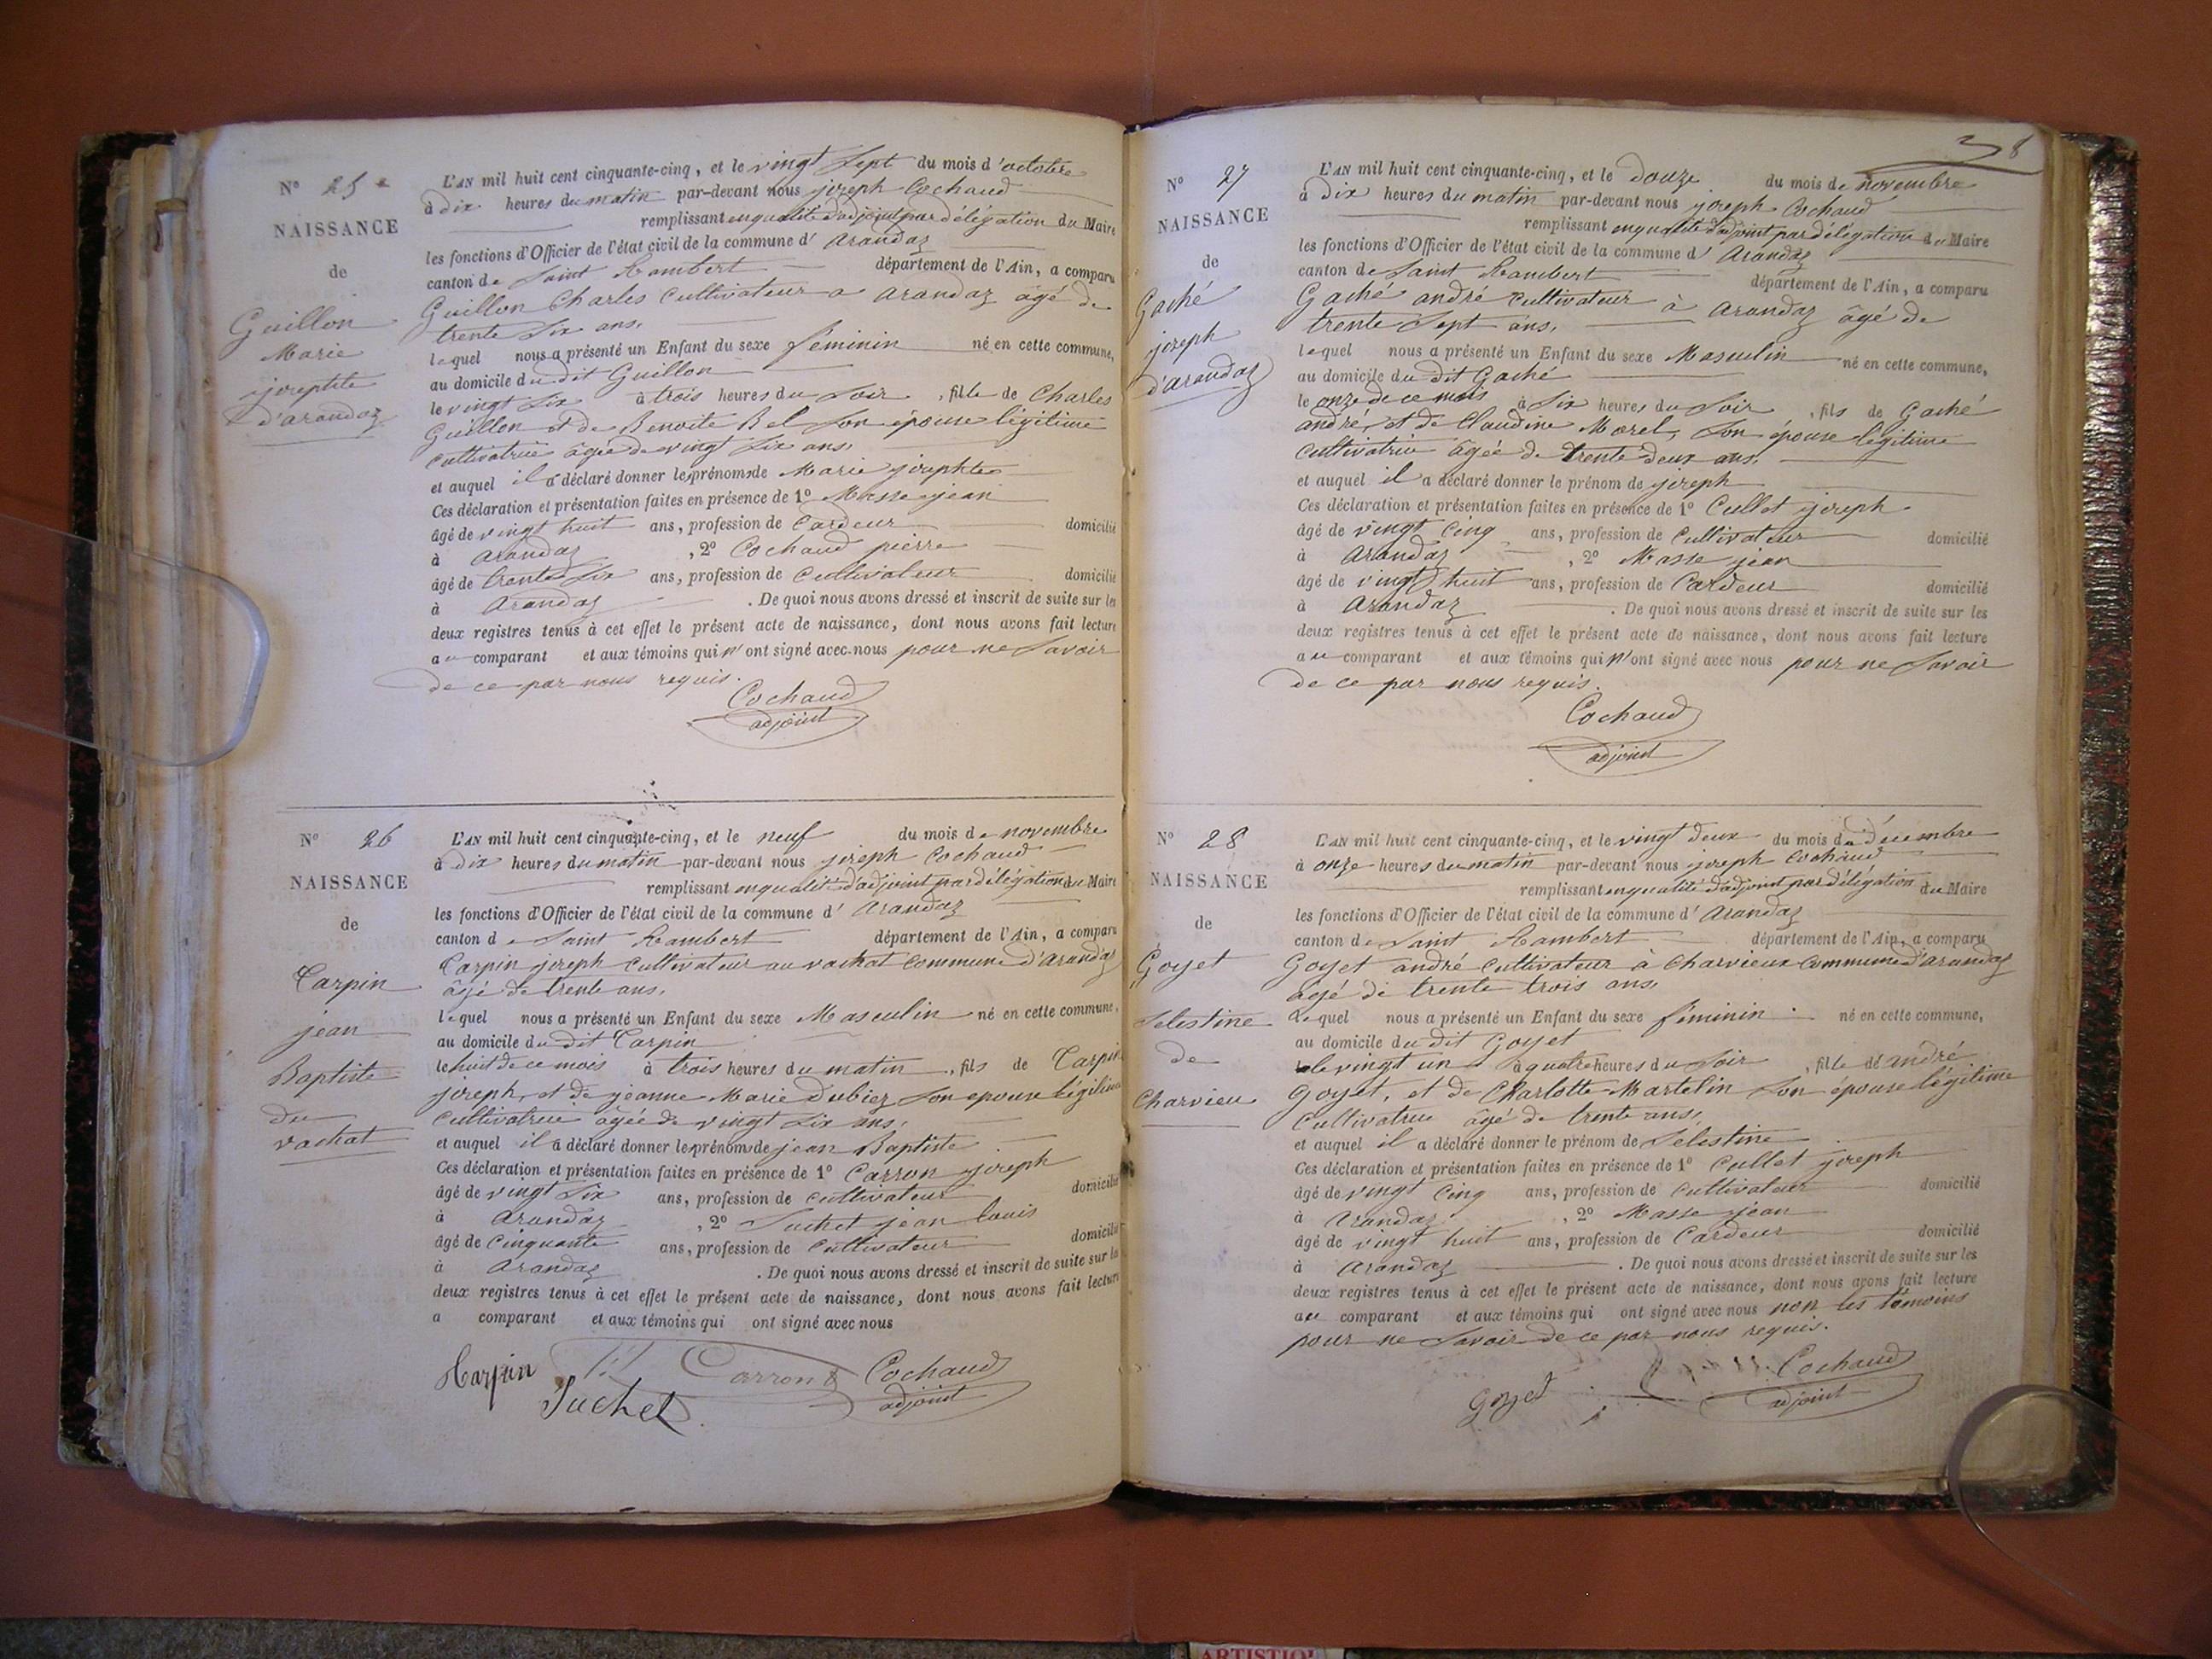 N° 25
NAISSANCE
de
Guillon
Marie
josephte
d'arandaz
L'AN mil huit cent cinquante-cinq, et le vingt sept du mois d'octobre
à dix heures du matin par-devant nous joseph Cochaud
remplissant en qualité d'adjoint par délégation du Maire
les fonctions d'Officier de l'état civil de la commune d' arandaz
canton de Saint Rambert département de l'Ain, a comparu
Guillon Charles Cultivateur a arandaz âgé de
trente six ans,
lequel nous a présenté un Enfant du sexe féminin né en cette commune,
au domicile du dit Guillon
le vingt six à trois heures du soir, fille de Charles
Guillon et de Benoite Bel son épouse légitime
cultivatrice âgée de vingt six ans,
et auquel il a déclaré donner les prénoms de Marie josephte
Ces déclaration et présentation faites en présence de 1° Masse jean
âgé de vingt huit ans, profession de Cardeur domicilié
à arandaz, 2° Cochaud pierre
âgé de trente six ans, profession de Cultivateur domicilié
à arandaz. De quoi nous avons dressé et inscrit de suite sur les
deux registres tenus à cet effet le présent acte de naissance, dont nous avons fait lecture
au comparant et aux témoins qui n'ont signé avec nous pour ne savoir
de ce par nous requis.
Cochaud
adjoint
N° 26
NAISSANCE
de
Carpin
jean
Baptiste
du
vachat
L'AN mil huit cent cinquante-cinq, et le neuf du mois de novembre
à dix heures du matin par-devant nous joseph Cochaud
remplissant en qualité d'adjoint par délégation du Maire
les fonctions d'Officier de l'état civil de la commune d' arandaz
canton de Saint Rambert département de l'Ain, a comparu
Carpin joseph cultivateur au vachat commune d'arandaz
âgé de trente ans,
lequel nous a présenté un Enfant du sexe Masculin né en cette commune,
au domicile du dit Carpin
le huit de ce mois à trois heures du matin, fils de Carpin
joseph, et de jeanne Marie Dubiez son epouse légitime
cultivatrice agée de vingt six ans,
et auquel il a déclaré donner les prénoms de jean Baptiste
Ces déclaration et présentation faites en présence de 1° Carron joseph
âgé de vingt six ans, profession de cultivateur domicilié
à arandaz, 2° Suchet jean louis
âgé de cinquante ans, profession de Cultivateur domicilié
à arandaz. De quoi nous avons dressé et inscrit de suite sur les
deux registres tenus à cet effet le présent acte de naissance, dont nous avons fait lecture
a comparant et aux témoins qui ont signé avec nous
Carpin Carron Cochaud
Suchet adjoint
38
N° 27
NAISSANCE
de
Gaché
joseph
d'arandaz
L'AN mil huit cent cinquante-cinq, et le douze du mois de novembre
à dix heures du matin par-devant nous joseph Cochaud
remplissant en qualité d'adjoint par délégation du Maire
les fonctions d'Officier de l'état civil de la commune d' arandaz
canton de Saint Rambert département de l'Ain, a comparu
Gaché andré cultivateur à arandaz âgé de
trente sept ans,
lequel nous a présenté un Enfant du sexe Masculin né en cette commune,
au domicile du dit Gaché
le onze de ce mois à six heures du soir, fils de Gaché
andré, et de Claudine Morel, son épouse légitime
cultivatrice âgée de trente deux ans,
et auquel il a déclaré donner le prénom de joseph
Ces déclaration et présentation faites en présence de 1° Cullet joseph
âgé de vingt cinq ans, profession de Cultivateur domicilié
à arandaz, 2° Masse jean
âgé de vingt huit ans, profession de Cardeur domicilié
à arandaz. De quoi nous avons dressé et inscrit de suite sur les
deux registres tenus à cet effet le présent acte de naissance, dont nous avons fait lecture
au comparant et aux témoins qui n'ont signé avec nous pour ne savoir
de ce par nous requis.
Cochaud
adjoint
N° 28
NAISSANCE
de
Goyet
Selestine
de
Charvieu
L'AN mil huit cent cinquante-cinq, et le vingt deux du mois de décembre
à onze heures du matin par-devant nous joseph Cochaud
remplissant en qualité d'adjoint par délégation du Maire
les fonctions d'Officier de l'état civil de la commune d' arandaz
canton de Saint Rambert département de l'Ain, a comparu
Goyet andré cultivateur à Charvieux commune d'arandaz
âgé de trente trois ans,
Lequel nous a présenté un Enfant du sexe féminin né en cette commune,
au domicile du dit Goyet
le vingt un à quatre heures du soir, fille de andré
Goyet, et de Charlotte Martelin son épouse légitime
Cultivatrice âgé de trente ans,
et auquel il a déclaré donner le prénom de Selestine
Ces déclaration et présentation faites en présence de 1° Cullet joseph
âgé de vingt cinq ans, profession de Cultivateur domicilié
à arandaz, 2° Masse jean
âgé de vingt huit ans, profession de Cardeur domicilié
à arandaz. De quoi nous avons dressé et inscrit de suite sur les
deux registres tenus à cet effet le présent acte de naissance, dont nous avons fait lecture
au comparant et aux témoins qui ont signé avec nous non les témoins
pour ne savoir de ce par nous requis.
Goyet Cochaud
adjoint